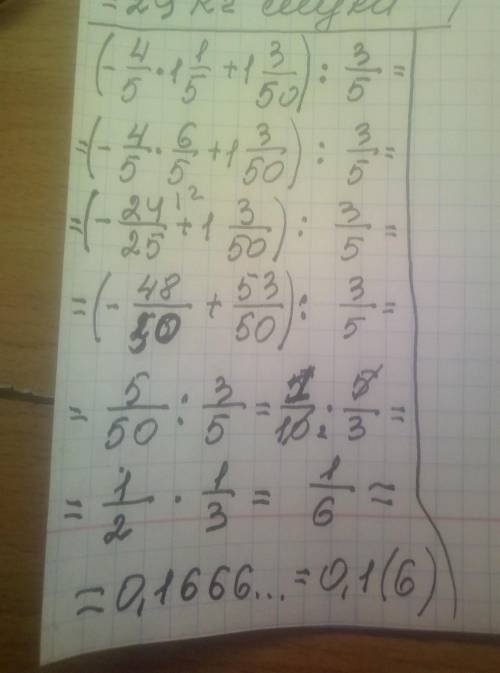 =29 кг муки
(-4/5 · 1 1/5 + 1 3/50) : 3/5 =
= (-4/5 · 6/5 + 1 3/50) : 3/5 =
= (-24/25 |² + 1 3/50) : 3/5 =
= (-48/50 + 53/50) : 3/5 =
= 5/50 : 3/5 = 1/10₂ : 5/3 =
= 1/2 · 1/3 = 1/6 =
= 0,1666... = 0,1(6)